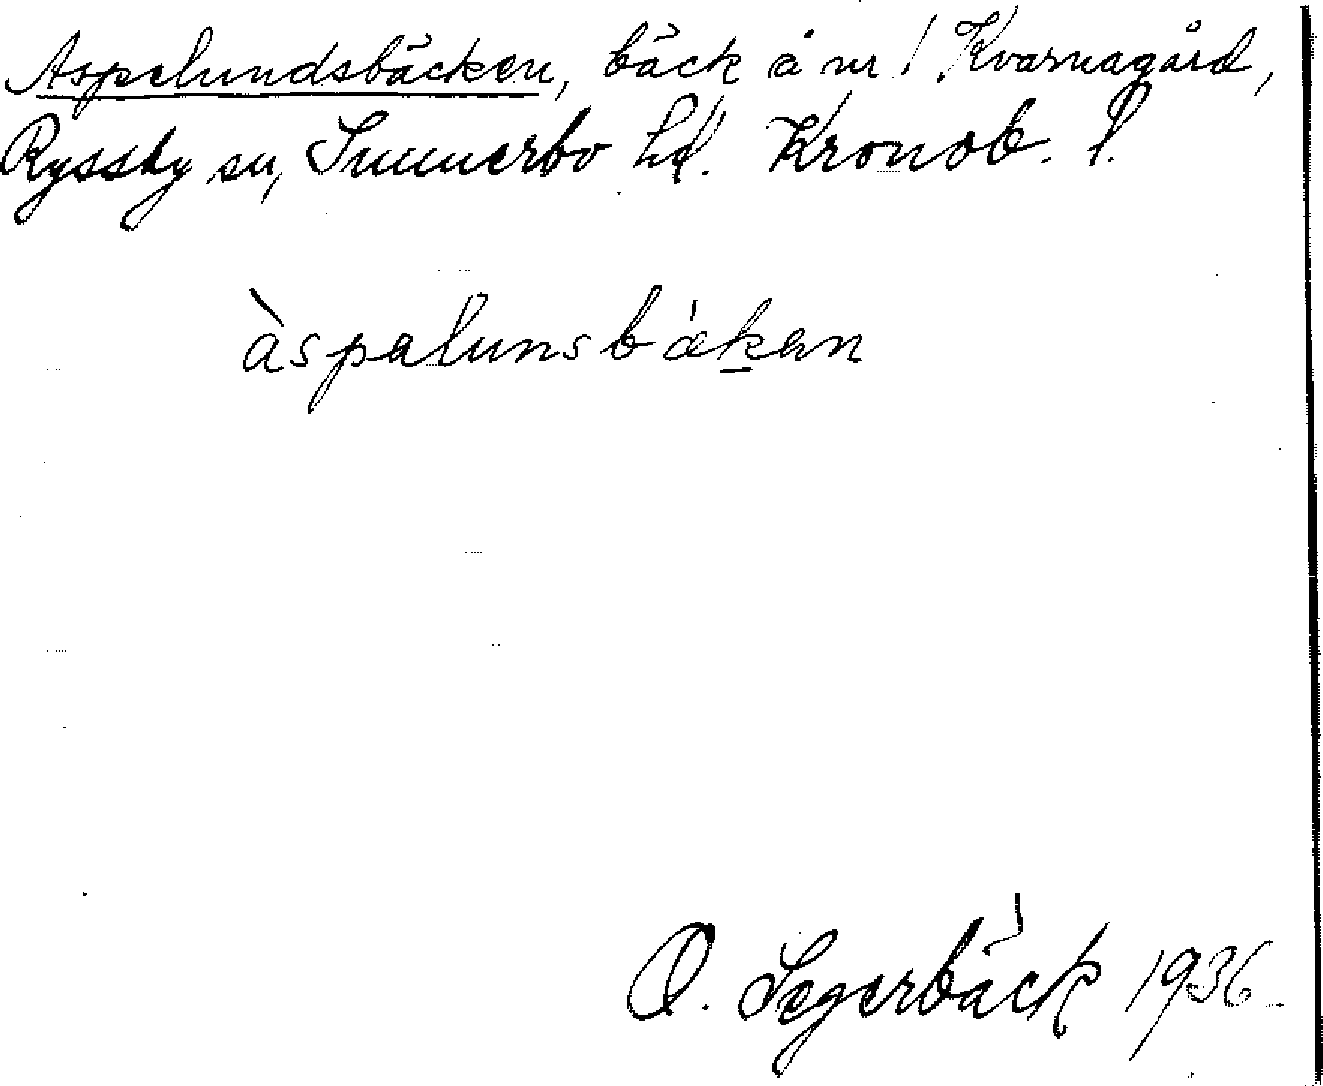 Aspelundsbäcken, bäck å nr 1 Kvarnagård,
Ryssby sn, Sunnerbo hd. Kronob. l.
àspalunsbækan
O. Segerbäck 1936